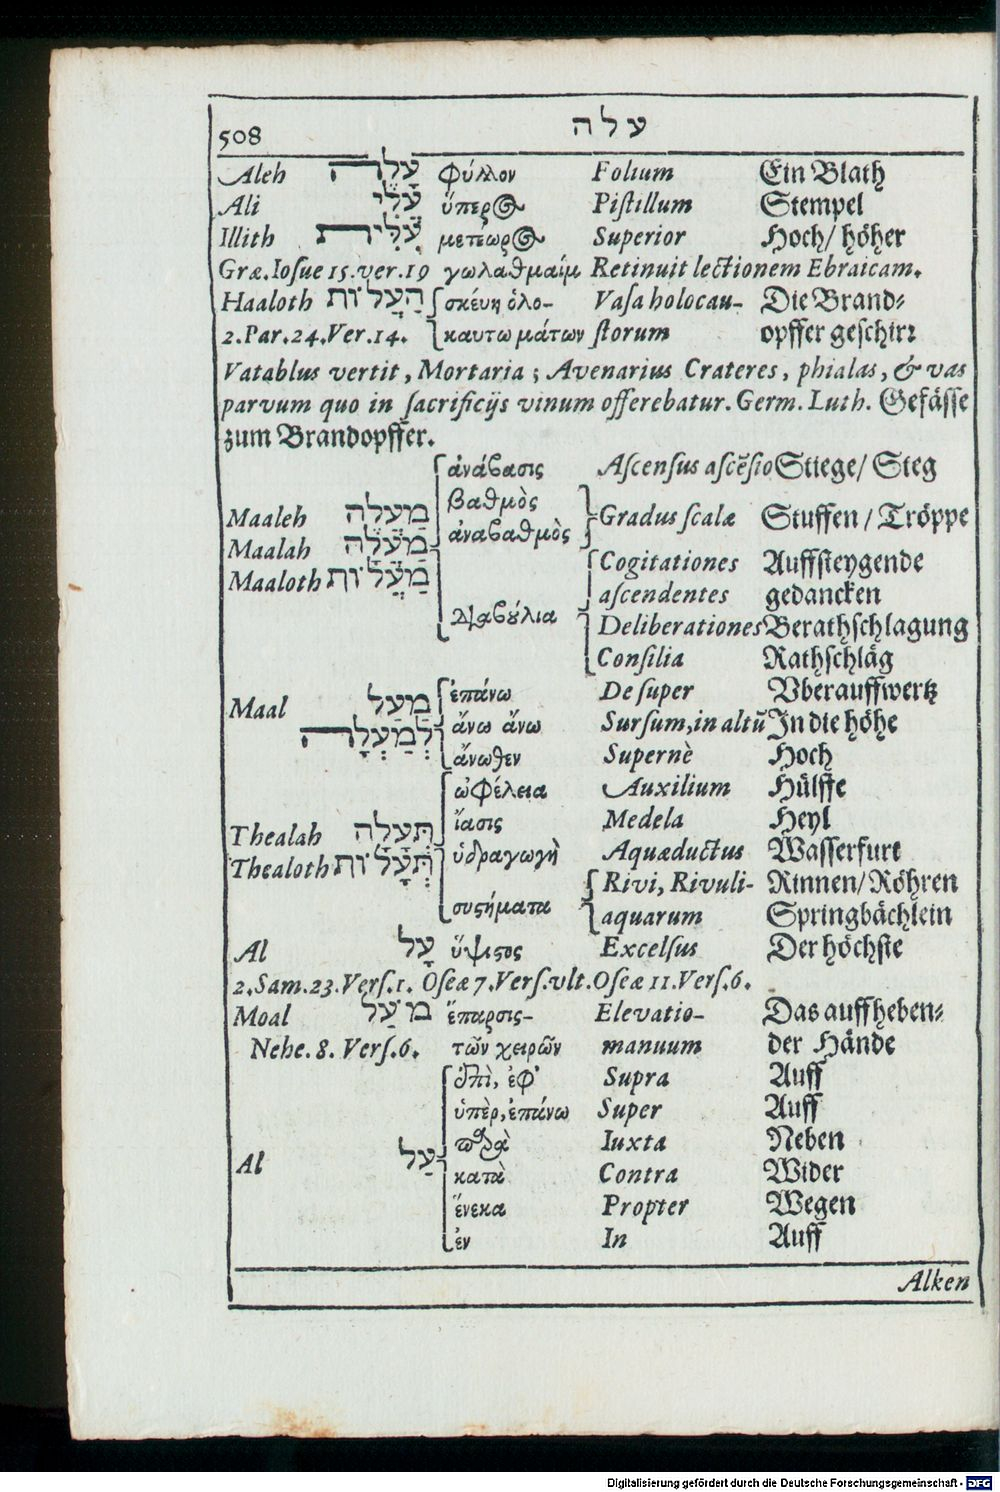 508 עלה
Aleh עָלֶה φύλλον Folium Ein Blath
Ali עֱלִי ὕπερος Pistillum Stempel
Illith עִלִּית μετέωρος Superior Hoch/ höher
Græ. Iosue 15. ver. 19 γωλαθμαίμ Retinuit lectionem Ebraicam.
Haaloth הַעֲלוֹת σκέυη ὁλο- Vasa holocau- Die Brand-
2. Par. 24. Ver. 14. καυτωμάτων storum opffer geschirr
Vatablus vertit, Mortaria; Avenarius Crateres, phialas, & vas
parvum quo in sacrificijs vinum offerebatur. Germ. Luth. Gefässe
zum Brandopffer.
ἀνάβασις Ascensus ascẽsio Stiege/ Steg
βαθμὸς
Maaleh מַעֲלֶה Gradus scalæ Stuffen/ Tröppe
ἀναβαθμὸς
Maalah מַעֲלָה Cogitationes Auffsteygende
Maaloth מַעֲלוֹת ascendentes gedancken
Διαβούλια Deliberationes Berathschlagung
Consilia Rathschläg
Maal מַעַל ἐπάνω De super Vberauffwertz
לְמַעְלָה ἄνω ἄνω Sursum, in altũ In die höhe
ἄνωθεν Supernè Hoch
ὠφέλεια Auxilium Hülffe
Thealah תְּעָלָה ἴασις Medela Heyl
Thealoth תְּעָלוֹת ὑδραγωγὴ Aquæductus Wasserfurt
Rivi, Rivuli- Rinnen/ Röhren
συστήματα aquarum Springbächlein
Al עָל ὕψιστος Excelsus Der höchste
2. Sam. 23. Vers. 1. Oseæ 7. Vers. vlt. Oseæ 11. Vers. 6.
Moal מוֹעַל ἔπαρσις- Elevatio- Das auffheben-
Nehe. 8. Vers. 6. τῶν χειρῶν manuum der Hände
ἐπὶ, ἐφ' Supra Auff
ὑπὲρ, ἐπάνω Super Auff
παρὰ Iuxta Neben
Al עַל κατὰ Contra Wider
ἕνεκα Propter Wegen
ἐν In Auff
Alken
Digitalisierung gefördert durch die Deutsche Forschungsgemeinschaft - DFG